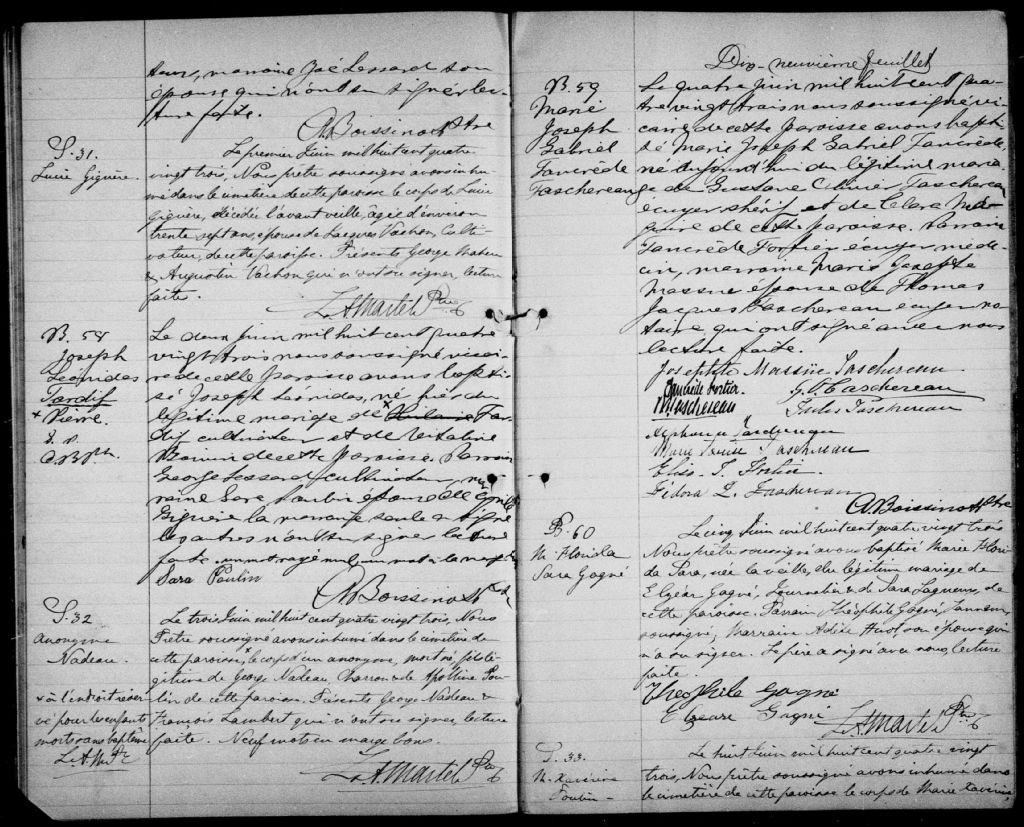 teurs, marraine Zoé Lessard son
épouse qui n'ont su signer lec-
ture faite.
A Boissinot Ptre
S. 31.
Lucie Giguère.
Le premier Juin mil huit cent quatre
vingt trois, Nous prêtre soussigné avons inhu-
mé dans le cimetière de cette paroisse le corps de Lucie
Giguère, décédée l'avant veille, âgée d'environ
trente sept ans, épouse de Jacques Vachon, Culti-
vateur, de cette paroisse. Présents George Mathieu
& Augustin Vachon qui n'ont su signer, lecture
faite.
L. A. Martel Ptre
B. 58
Joseph
Léonidas
Tardif
+ Pierre.
A B Ptr.
Le deux Juin mil huit cent quatre
vingt trois nous soussigné vicai-
re de cette paroisse avons bapti-
sé Joseph Léonidas, né hier du
légitime mariage de + Tar-
dif cultivateur et de
de cette paroisse. Parrain
George Lessard cultivateur, mar-
raine Sara Poulin épouse de
Giguère la marraine seule a signé
les autres n'ont su signer lecture
faite. un mot rayé nul, un mot à la marge bon
Sara Poulin
A Boissinot Ptr
S. 32
Anonyme
Nadeau.
x à l'endroit réser
vé pour les enfants
morts sans baptême
L. A. M. Ptr
Le trois Juin mil huit cent quatre vingt trois, Nous
Prêtre soussigné avons inhumé dans le cimetière de
cette paroisse, x le corps d'un anonyme, mort né, fils lé-
gitime de George Nadeau, Charron & de Apolline Pou-
lin de cette paroisse. Présents George Nadeau &
François Lambert qui n'ont su signer, lecture
faite. Neuf mots en marge bons.
L. A. Martel Ptr
Dix-neuvième feuillet
B. 59
Marie
Joseph
Gabriel
Tancrède
Taschereau
Le quatre Juin mil huit cent qua-
tre vingt trois nous soussigné vi-
caire de cette paroisse avons bapti-
sé Marie Joseph Gabriel Tancrède,
né aujourd'hui du légitime maria-
ge de Gustave Olivier Taschereau
écuyer shérif et de Clara Ma-
guire de cette paroisse. Parrain
Tancrède Fortier écuyer, méde-
cin, marraine Marie Josephte
Massue épouse de Thomas
Jacques Taschereau écuyer no-
taire qui ont signé avec nous
lecture faite.
Josephte Massüe Taschereau
Tancrède Fortier G. O. Taschereau
Taschereau Jules Taschereau
Alphonse Taschereau
Marie Louise Taschereau
Elisa. T. Fortier
Fédora L. Taschereau
A Boissinot Ptre
B. 60
M. Florida
Sara Gagné
Le cinq Juin mil huit cent quatre vingt trois
Nous prêtre soussigné avons baptisé Marie Flori-
da Sara, née la veille, du légitime mariage de
Elzéar Gagné, Journalier & de Sara Lagueux, de
cette paroisse. Parrain Théophile Gagné, Tanneur,
soussigné, Marraine Adèle Huot son épouse qui
n'a su signer. Le père a signé avec nous, lecture
faite.
Théophile Gagné
Elzeare Gagné L. A. Martel Ptre
S. 33.
M. Xavérine
Poulin
Le huit Juin mil huit cent quatre vingt
trois, Nous prêtre soussigné avons inhumé dans
le cimetière de cette paroisse le corps de Marie Xavérine,